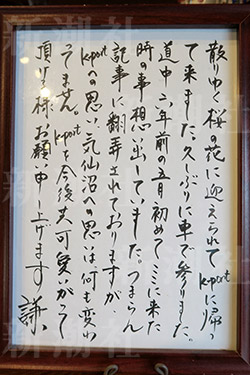 散りゆく桜の花に迎えられてK-portに帰っ
て来ました。久しぶりに車で参りました。
道中六年前の五月初めてここに来た
時の事想い出していました。つまらん
記事に翻弄されておりますが、
K-portへの思い、気仙沼への思いは何も変わ
ってません。K-portを今後共可愛いがって
頂けます様、お願い申し上げます 謙
新潮社